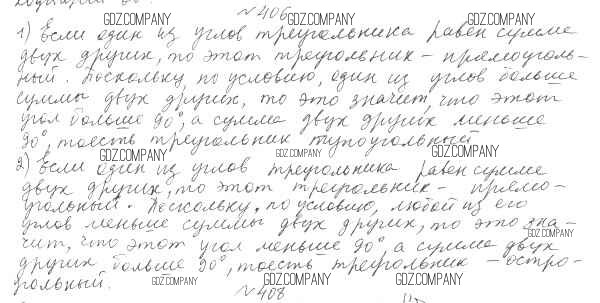 №406
1) Если один из углов треугольника равен сумме
двух других, то этот треугольник - прямоуголь-
ный. Поскольку, по условию, один из углов больше
суммы двух других, то это значит, что этот
угол больше 90°, а сумма двух других меньше
90°, тоесть треугольник тупоугольный
2) Если один из углов треугольника равен сумме
двух других, то этот треугольник - прямо-
угольный. Поскольку, по условию, любой из его
углов меньше суммы двух других, то это зна-
чит, что этот угол меньше 90°, а сумма двух
других больше 90°, тоесть треугольник - остро-
гольный.
№408
GDZ.COMPANY
GDZ.COMPANY
GDZ.COMPANY
GDZ.COMPANY
GDZ.COMPANY
GDZ.COMPANY
GDZ.COMPANY
GDZ.COMPANY
GDZ.COMPANY
GDZ.COMPANY